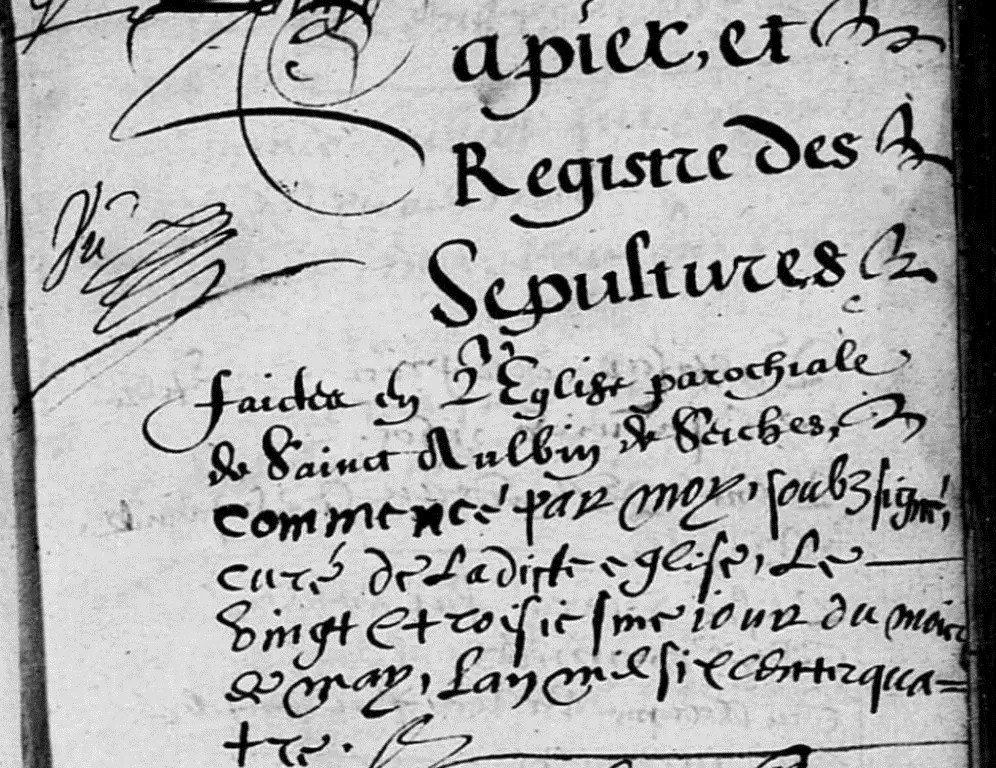 Papier, et
Registre des
Sepultures
faictes en L'Eglise parochiale
de Sainct Aulbin de Seiches,
commencé par moy, soubzsigné,
curé de Ladicte eglise, Le
vingt et troisiesme iour du mois
de may, L'an mil six cent qua=
tre.